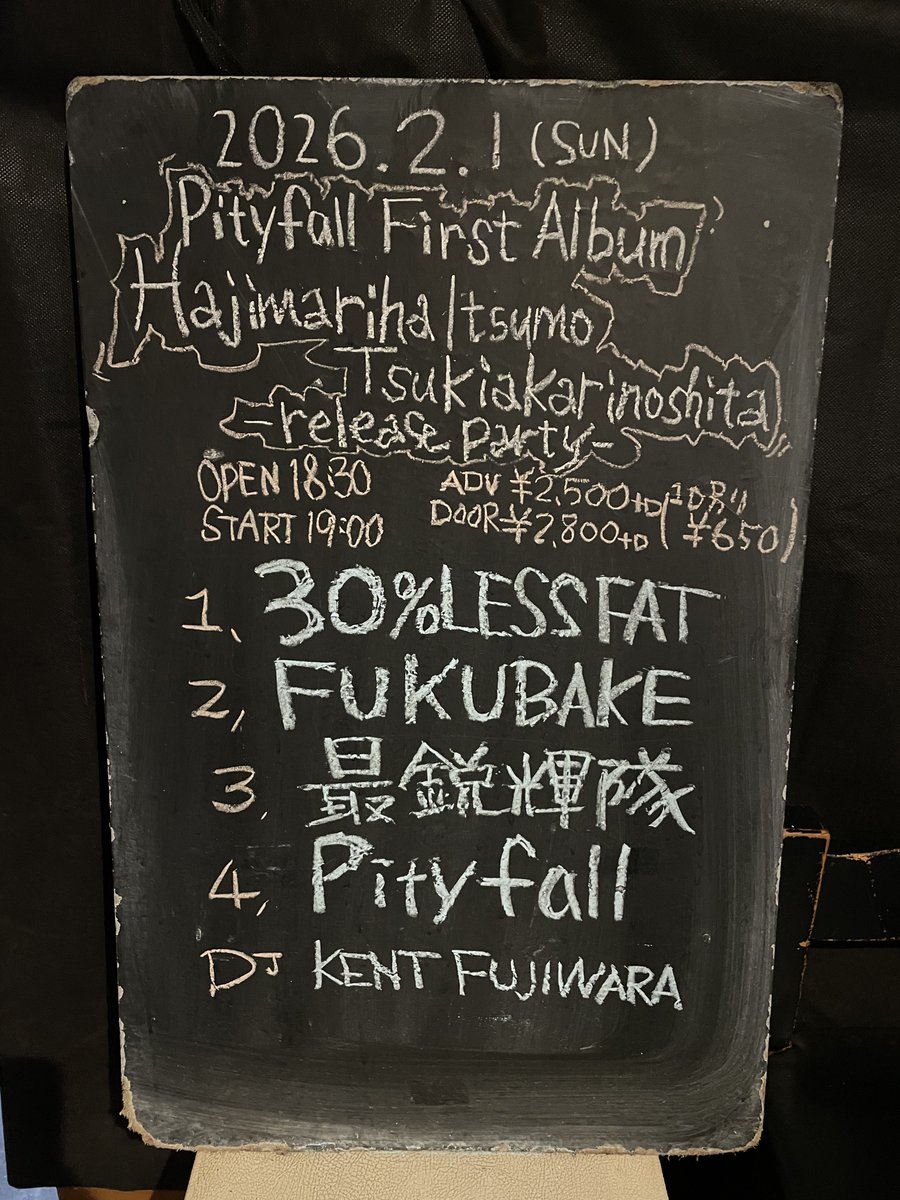 2026.2.1 (SUN)
Pityfall First Album
Hajimariha Itsumo
Tsukiakarinoshita
-release party-
OPEN 18:30
START 19:00
ADV ¥2,500+D
DOOR ¥2,800+D
(1DRリ
¥650)
1, 30%LESSFAT
2, FUKUBAKE
3, 最鋭輝隊
4, Pityfall
DJ KENT FUJIWARA